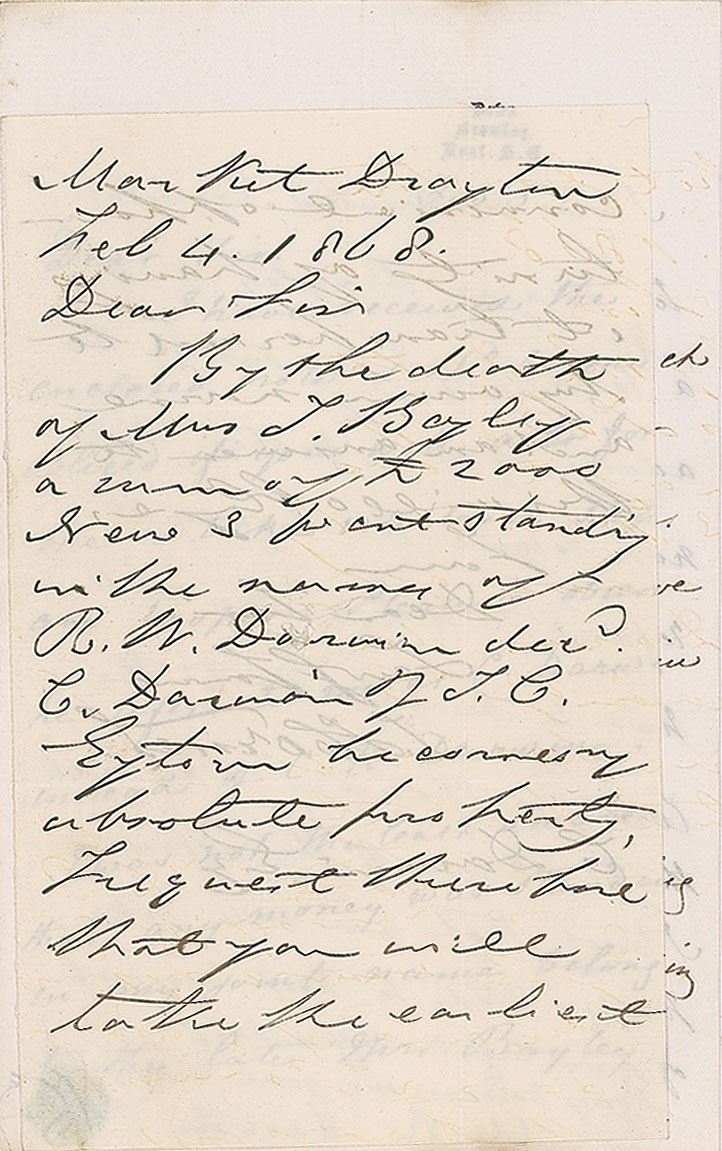 Market Drayton
Feb 4. 1868.
Dear Sir
By the death
of Mrs T. Bayley
a sum of £2000
New 3 p cent standing
in the names of
R. W. Darwin decd.
C. Darwin & T. C.
Eyton becomes my
absolute property,
I request therefore
that you will
take the earliest
ch
ve
ing
in